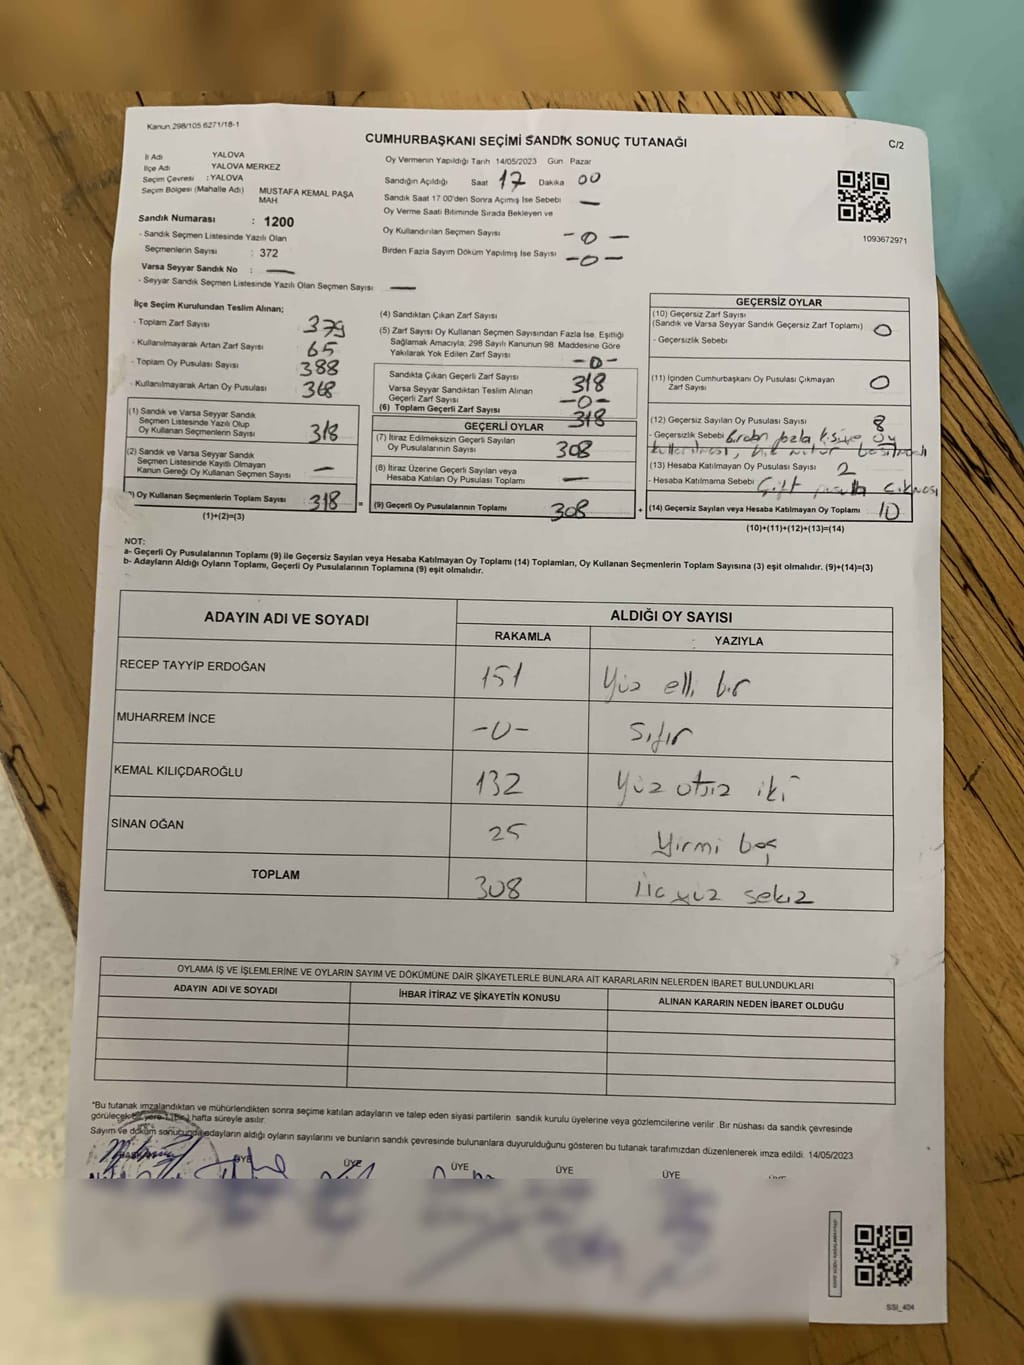 Kanun 298/105 6271/18-1
CUMHURBAŞKANI SEÇİMİ SANDIK SONUÇ TUTANAĞI
C/2
İl Adı YALOVA
İlçe Adı YALOVA MERKEZ
Seçim Çevresi : YALOVA
Seçim Bölgesi (Mahalle Adı) MUSTAFA KEMAL PAŞA MAH
Sandık Numarası : 1200
- Sandık Seçmen Listesinde Yazılı Olan
Seçmenlerin Sayısı : 372
Varsa Seyyar Sandık No : —
- Seyyar Sandık Seçmen Listesinde Yazılı Olan Seçmen Sayısı : —
Oy Vermenin Yapıldığı Tarih 14/05/2023 Gün Pazar
Sandığın Açıldığı Saat 17 Dakika 00
Sandık Saat 17.00'den Sonra Açımış İse Sebebi —
Oy Verme Saati Bitiminde Sırada Bekleyen ve
Oy Kullandırılan Seçmen Sayısı - 0 -
Birden Fazla Sayım Döküm Yapılmış İse Sayısı - 0 -
1093672971
İlçe Seçim Kurulundan Teslim Alınan;
- Toplam Zarf Sayısı 379
- Kullanılmayarak Artan Zarf Sayısı 65
- Toplam Oy Pusulası Sayısı 388
- Kullanılmayarak Artan Oy Pusulası
(1) Sandık ve Varsa Seyyar Sandık
Seçmen Listesinde Yazılı Olup
Oy Kullanan Seçmenlerin Sayısı 318
(2) Sandık ve Varsa Seyyar Sandık
Seçmen Listesinde Kayıtlı Olmayan
Kanun Gereği Oy Kullanan Seçmen Sayısı —
) Oy Kullanan Seçmenlerin Toplam Sayısı 318 =
(1)+(2)=(3)
(4) Sandıktan Çıkan Zarf Sayısı
(5) Zarf Sayısı Oy Kullanan Seçmen Sayısından Fazla İse, Eşitliği
Sağlamak Amacıyla; 298 Sayılı Kanunun 98. Maddesine Göre
Yakılarak Yok Edilen Zarf Sayısı -0-
Sandıkta Çıkan Geçerli Zarf Sayısı 318
Varsa Seyyar Sandıktan Teslim Alınan
Geçerli Zarf Sayısı -0-
(6) Toplam Geçerli Zarf Sayısı 318
GEÇERLİ OYLAR
(7) İtiraz Edilmeksizin Geçerli Sayılan
Oy Pusulalarının Sayısı 308
(8) İtiraz Üzerine Geçerli Sayılan veya
Hesaba Katılan Oy Pusulası Toplamı —
(9) Geçerli Oy Pusulalarının Toplamı 308 +
GEÇERSİZ OYLAR
(10) Geçersiz Zarf Sayısı
(Sandık ve Varsa Seyyar Sandık Geçersiz Zarf Toplamı) 0
- Geçersizlik Sebebi
(11) İçinden Cumhurbaşkanı Oy Pusulası Çıkmayan
Zarf Sayısı 0
(12) Geçersiz Sayılan Oy Pusulası Sayısı 8
- Geçersizlik Sebebi Birden fazla kişiye oy
kullanılması,
(13) Hesaba Katılmayan Oy Pusulası Sayısı 2
- Hesaba Katılmama Sebebi Çift pusula çıkması
(14) Geçersiz Sayılan veya Hesaba Katılmayan Oy Toplamı 10
(10)+(11)+(12)+(13)=(14)
NOT:
a- Geçerli Oy Pusulalarının Toplamı (9) ile Geçersiz Sayılan veya Hesaba Katılmayan Oy Toplamı (14) Toplamları, Oy Kullanan Seçmenlerin Toplam Sayısına (3) eşit olmalıdır. (9)+(14)=(3)
b- Adayların Aldığı Oyların Toplamı, Geçerli Oy Pusulalarının Toplamına (9) eşit olmalıdır.
ADAYIN ADI VE SOYADI ALDIĞI OY SAYISI
RAKAMLA YAZIYLA
RECEP TAYYİP ERDOĞAN 151 Yüz elli bir
MUHARREM İNCE -0- Sıfır
KEMAL KILIÇDAROĞLU 132 Yüz otuz iki
SİNAN OĞAN 25 Yirmi beş
TOPLAM 308 Üç yüz sekiz
OYLAMA İŞ VE İŞLEMLERİNE VE OYLARIN SAYIM VE DÖKÜMÜNE DAİR ŞİKAYETLERLE BUNLARA AİT KARARLARIN NELERDEN İBARET BULUNDUKLARI
ADAYIN ADI VE SOYADI İHBAR İTİRAZ VE ŞİKAYETİN KONUSU ALINAN KARARIN NEDEN İBARET OLDUĞU
*Bu tutanak imzalandıktan ve mühürlendikten sonra seçime katılan adayların ve talep eden siyasi partilerin sandık kurulu üyelerine veya gözlemcilerine verilir. Bir nüshası da sandık çevresinde
görülecek bir yere 1 (Bir) hafta süreyle asılır.
Sayım ve döküm sonucunda adayların aldığı oyların sayılarını ve bunların sandık çevresinde bulunanlara duyurulduğunu gösteren bu tutanak tarafımızdan düzenlenerek imza edildi. 14/05/2023
BAŞKAN ÜYE ÜYE ÜYE ÜYE ÜYE
SSI_404